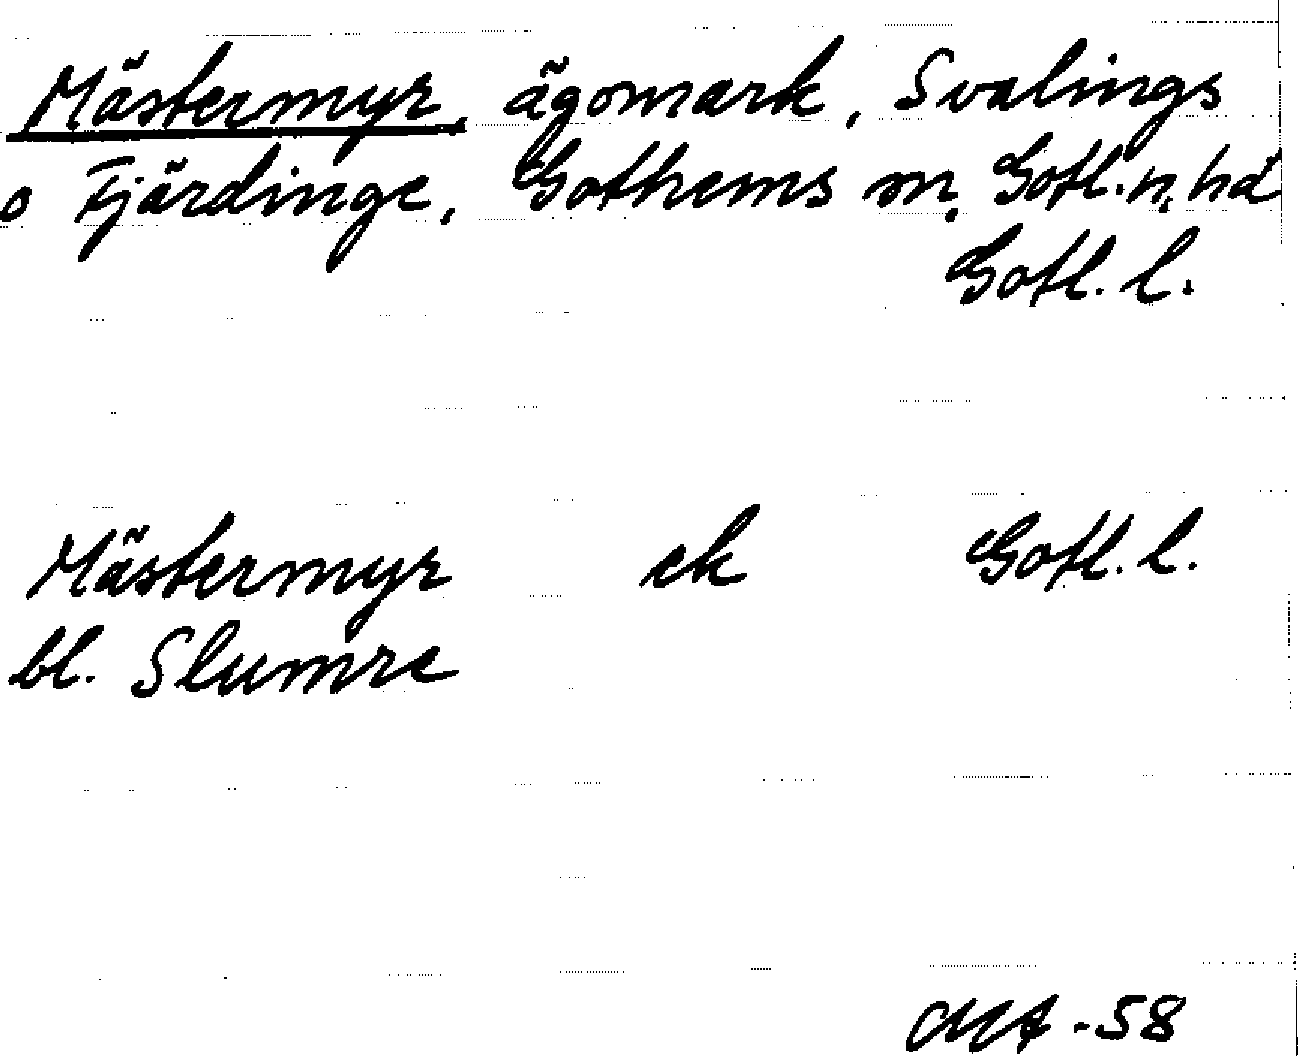 Mästermyr, ägomark, Svalings
o Fjärdinge, Gothems sn. Gotl. n. hd
Gotl. l.
Mästermyr ek Gotl. l.
bl. Slumre